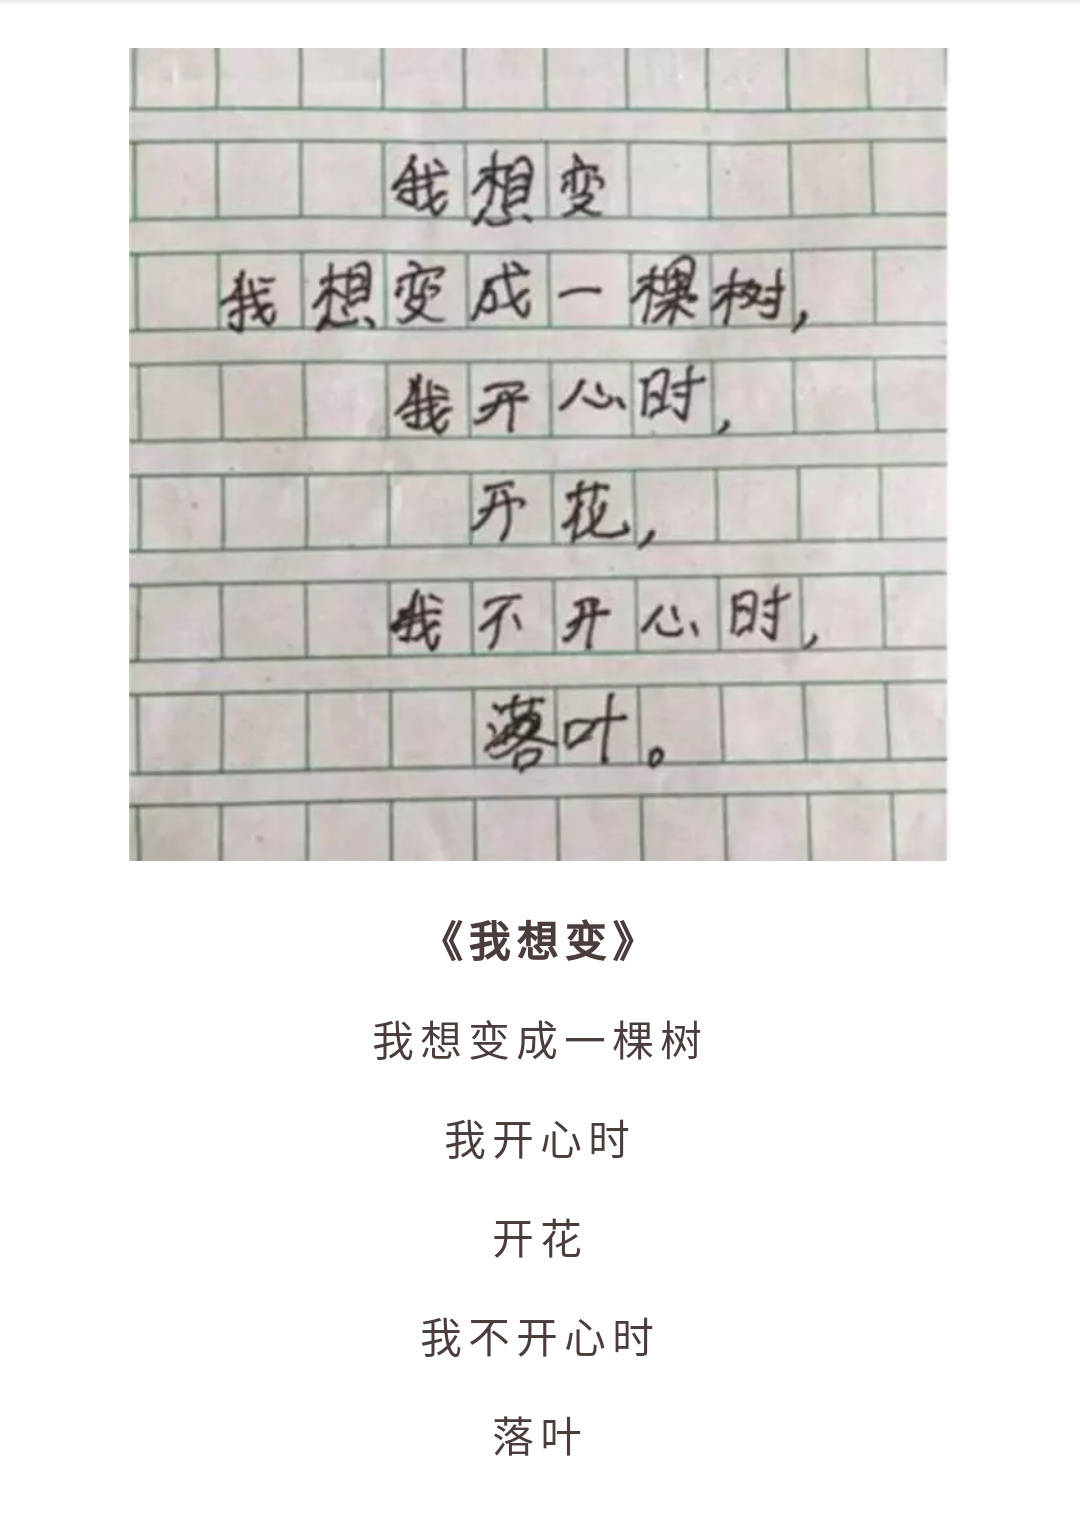 我想变
我想变成一棵树，
我开心时，
开花，
我不开心时，
落叶。
《我想变》
我想变成一棵树
我开心时
开花
我不开心时
落叶